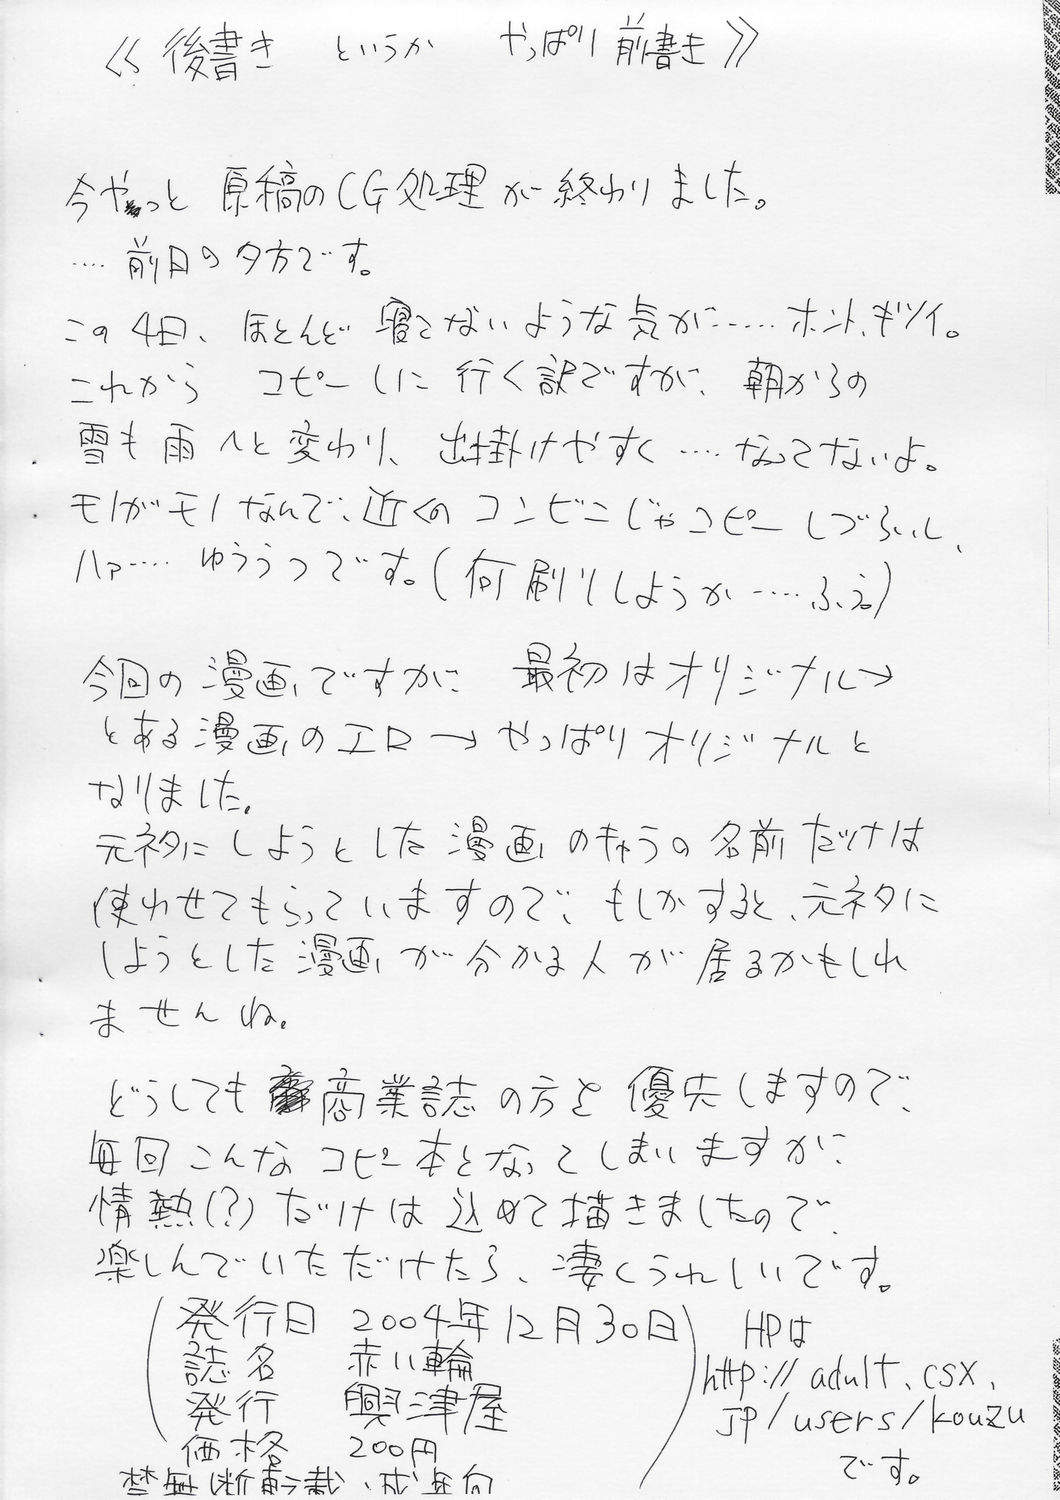 《後書き というか やっぱり前書き》
今やっと 原稿のCG処理が終わりました。
‥‥前日の夕方です。
この4日、ほとんど寝てないような気が……ホント、キツイ。
これから コピーしに行く訳ですが、朝からの
雪も雨へと変わり、出掛けやすく‥‥なってないよ。
モノがモノなんで、近くのコンビニじゃコピーしづらいし、
ハァ‥‥ゆううつです。(何刷りしようか‥‥ふぇ。)
今回の漫画ですが、最初はオリジナル→
とある漫画のエロ→やっぱりオリジナルと
なりました。
元ネタにしようとした漫画のキャラの名前だけは
使わせてもらっていますので、もしかすると、元ネタに
しようとした漫画が分かる人が居るかもしれ
ませんね。
どうしても商業誌の方を優先しますので、
毎回こんなコピー本となってしまいますが、
情熱(?)だけは込めて描きましたので、
楽しんでいただけたら、凄くうれしいです。
発行日 2004年12月30日
誌名 赤い輪
発行 興津屋
価格 200円
禁無断転載、成年向
HPは
http://adult.csx.
jp/users/kouzu
です。